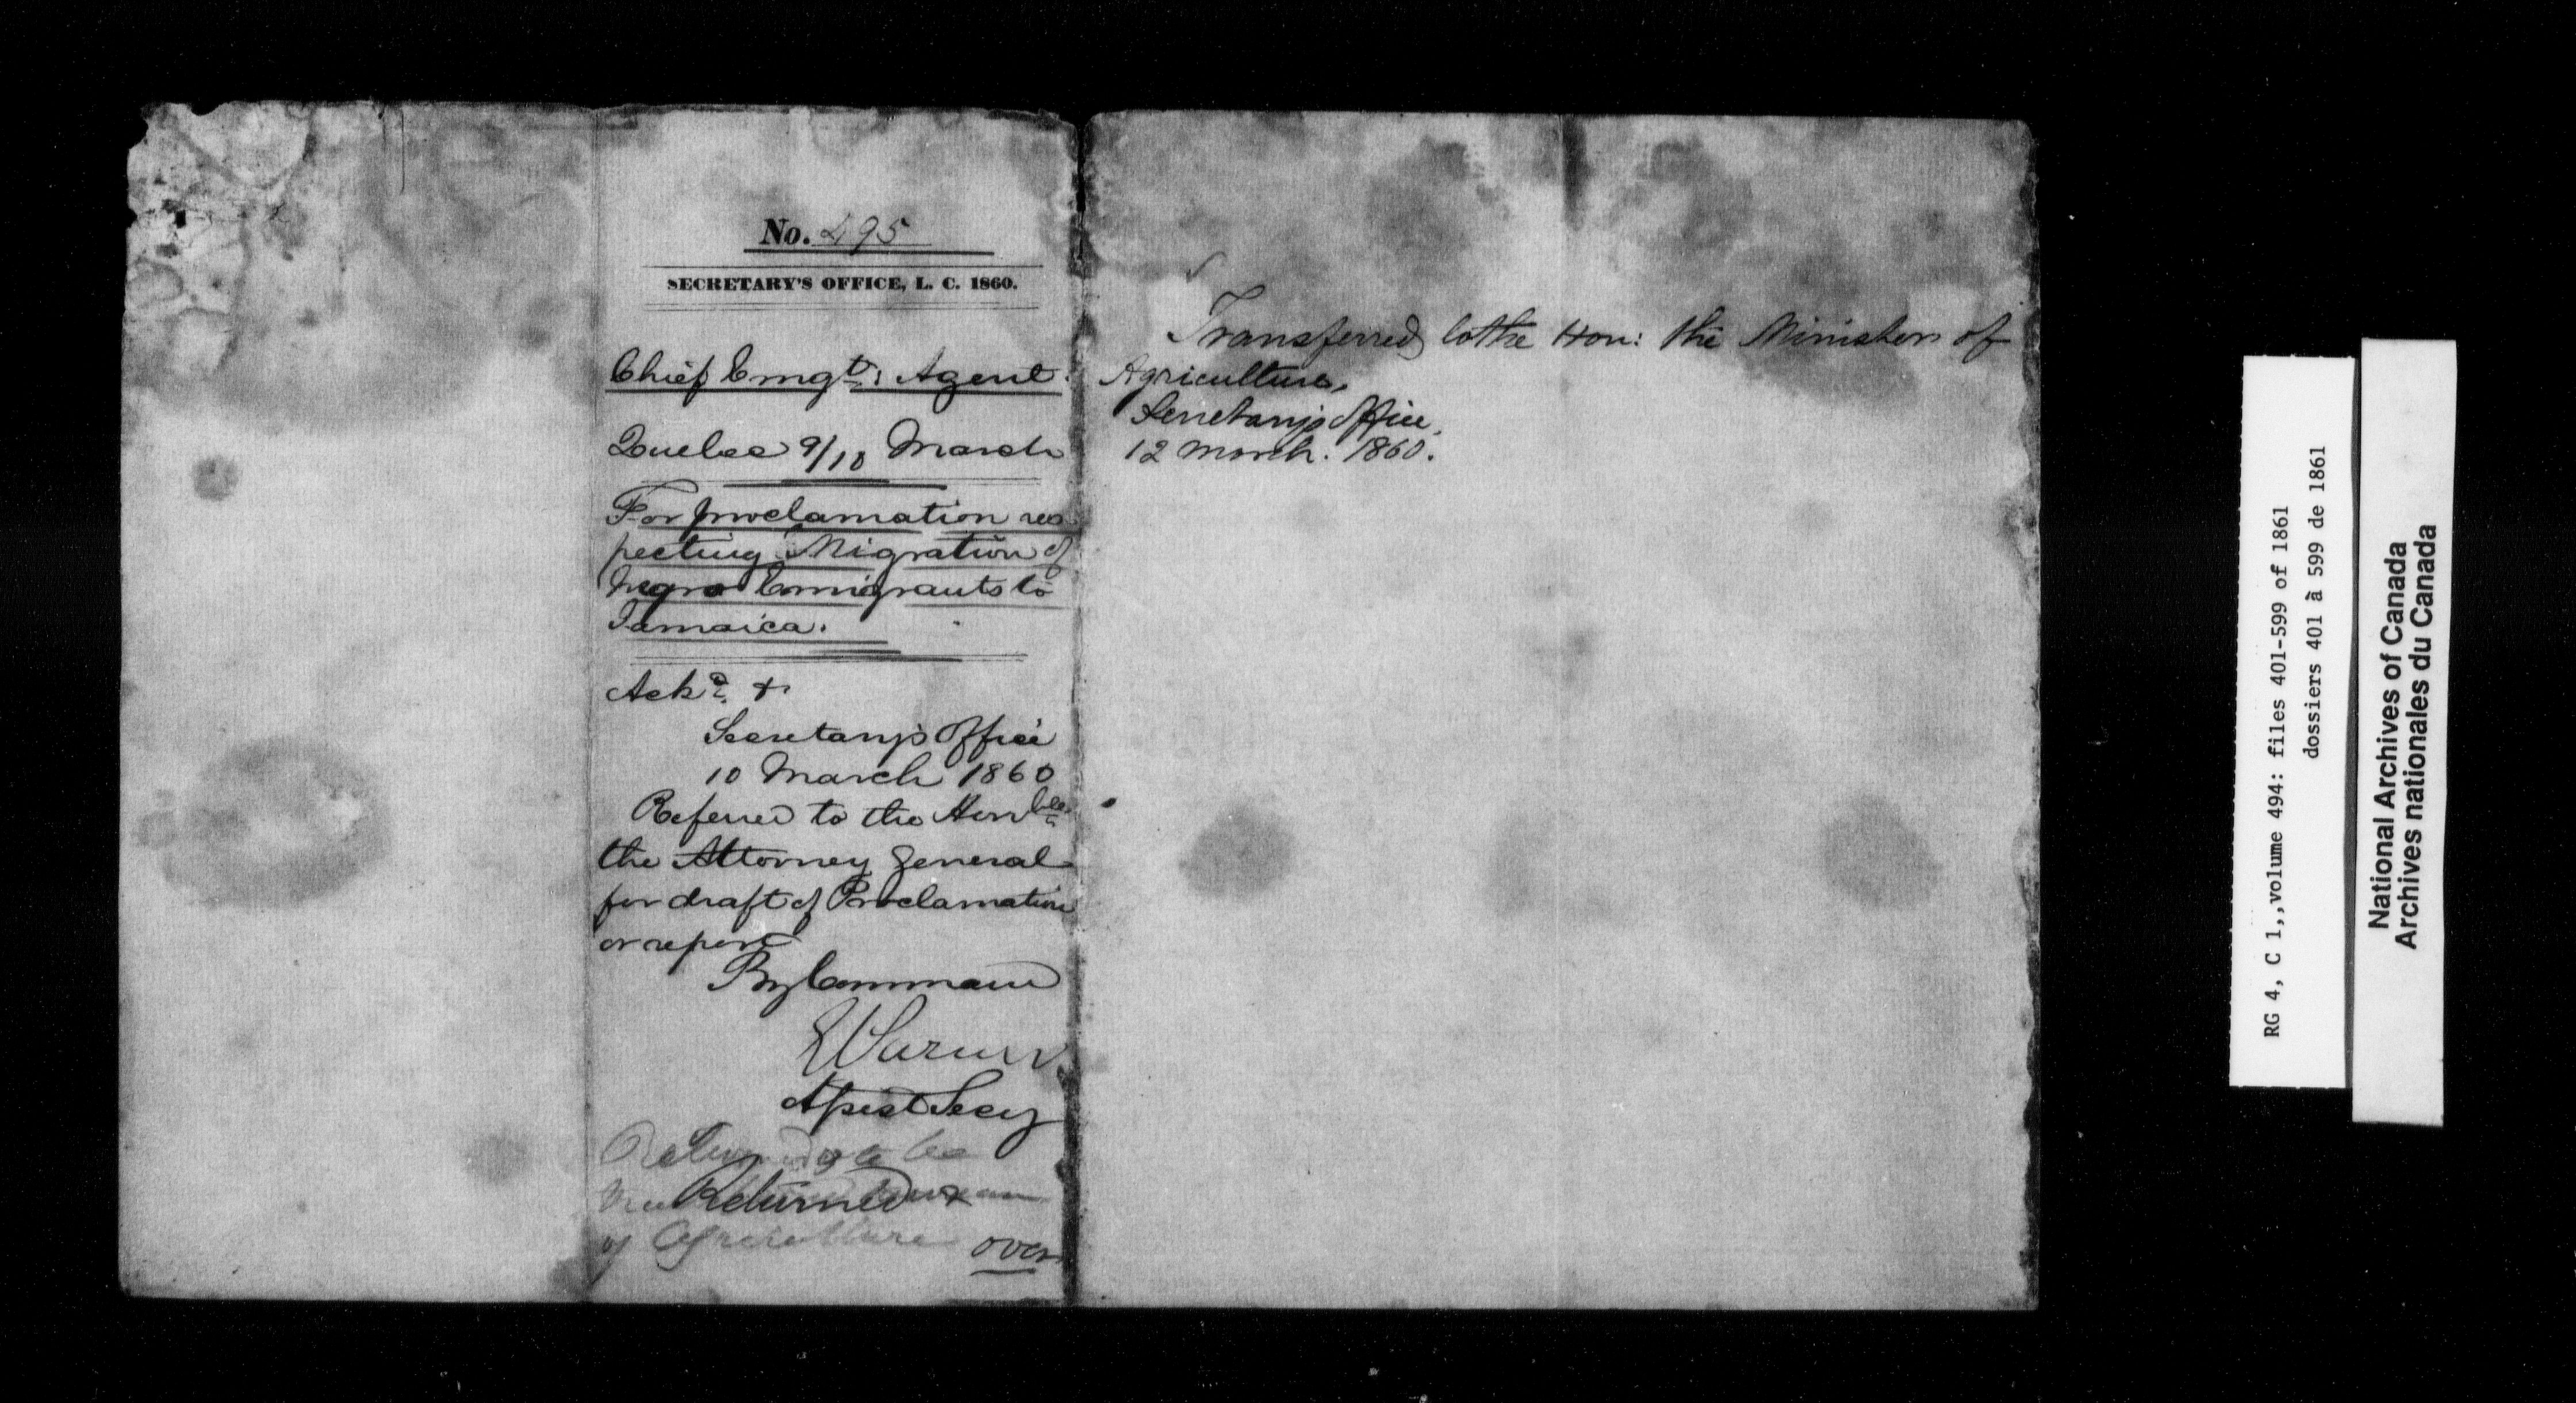 No. 495
SECRETARY'S OFFICE, L. C. 1860.
Chief Emgtn: Agent.
Quebec 9/10 March
For proclamation res
pecting Migration of
Negro Emigrants to
Jamaica.
Ackd. +
Secretary's Office
10 March 1860
Referred to the Honble
the Attorney General
for draft of Proclamation
or report
By Command
Assist Secy
Returned
of Agriculture
over
Transferred to the Hon: the Minister of
Agriculture,
Secretary's Office,
12 March. 1860.
RG 4, C 1,,volume 494: files 401-599 of 1861
dossiers 401 à 599 de 1861
National Archives of Canada
Archives nationales du Canada